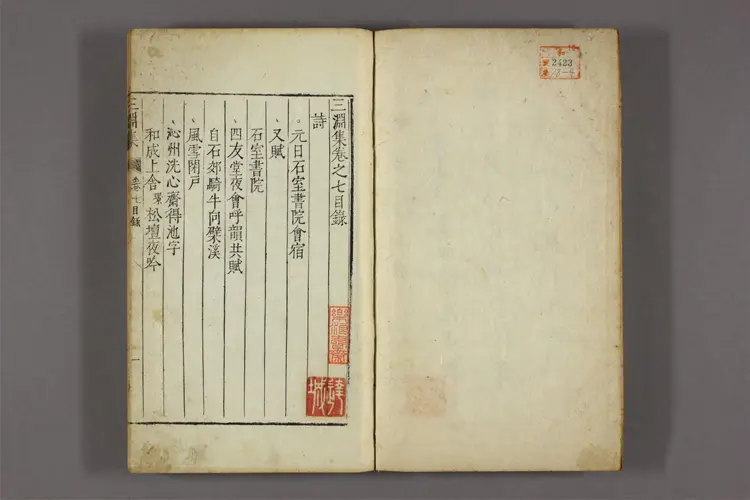 三淵集卷之七目錄
詩
元日石室書院會宿
又賦
石室書院
四友堂夜會呼韻共賦
自石郊騎牛向檗溪
風雪閉戶
沁州洗心齋得池字
和成上舍 松壇夜吟
三淵集 卷七目錄 一
達城
2423
13-4